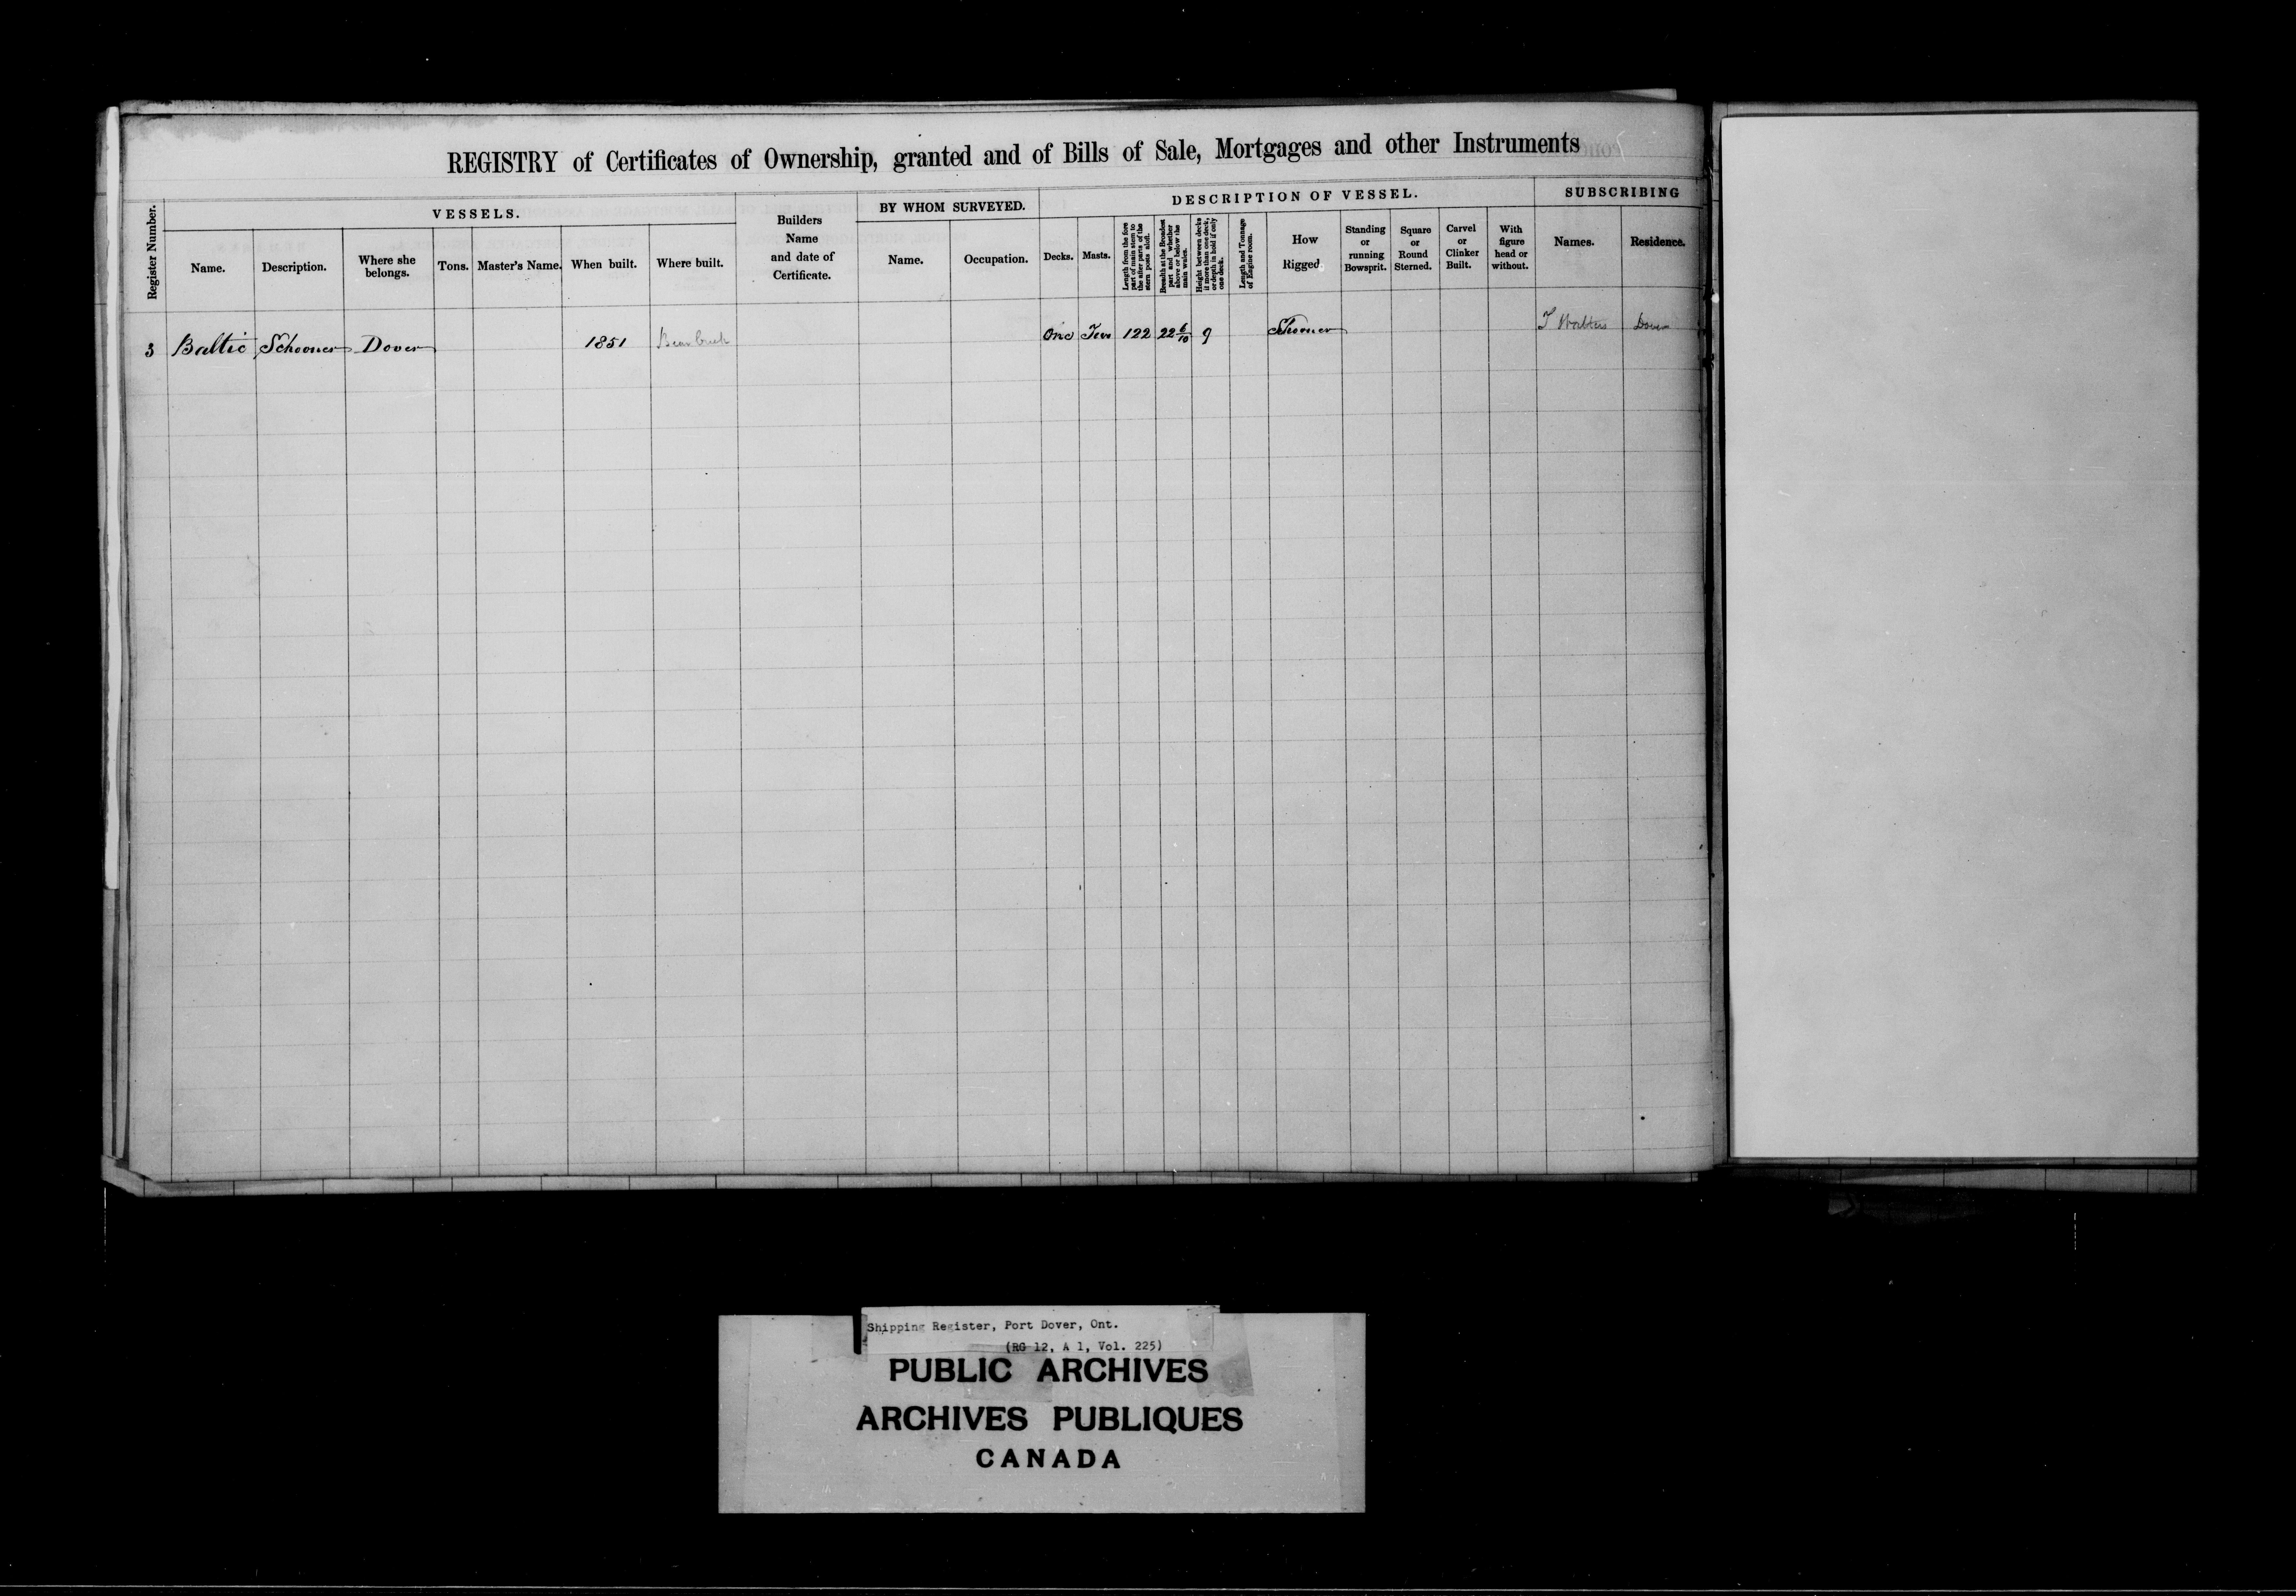 REGISTRY of Certificates of Ownership, granted and of Bills of Sale, Mortgages and other Instruments
Register Number.
VESSELS.
Name.
Description.
Where she
belongs.
Tons.
Master's Name.
When built.
Where built.
Builders
Name
and date of
Certificate.
BY WHOM SURVEYED.
Name.
Occupation.
DESCRIPTION OF VESSEL.
Decks.
Masts.
Length from the fore
part of main stem to
the after parts of the
stern posts aloft.
Breadth at the Broadest
part and whether
above or below the
main wales.
Height between decks
if more than one deck,
or depth in hold if only
one deck.
Length and Tonnage
of Engine room.
How
Rigged
Standing
or
running
Bowsprit.
Square
or
Round
Sterned.
Carvel
or
Clinker
Built.
With
figure
head or
without.
SUBSCRIBING
Names.
Residence.
3 Baltic Schooner Dover 1851 One Two 122 22 6/10 9 Schooner Dover
Shipping Register, Port Dover, Ont.
(RG 12, A 1, Vol. 225)
PUBLIC ARCHIVES
ARCHIVES PUBLIQUES
CANADA